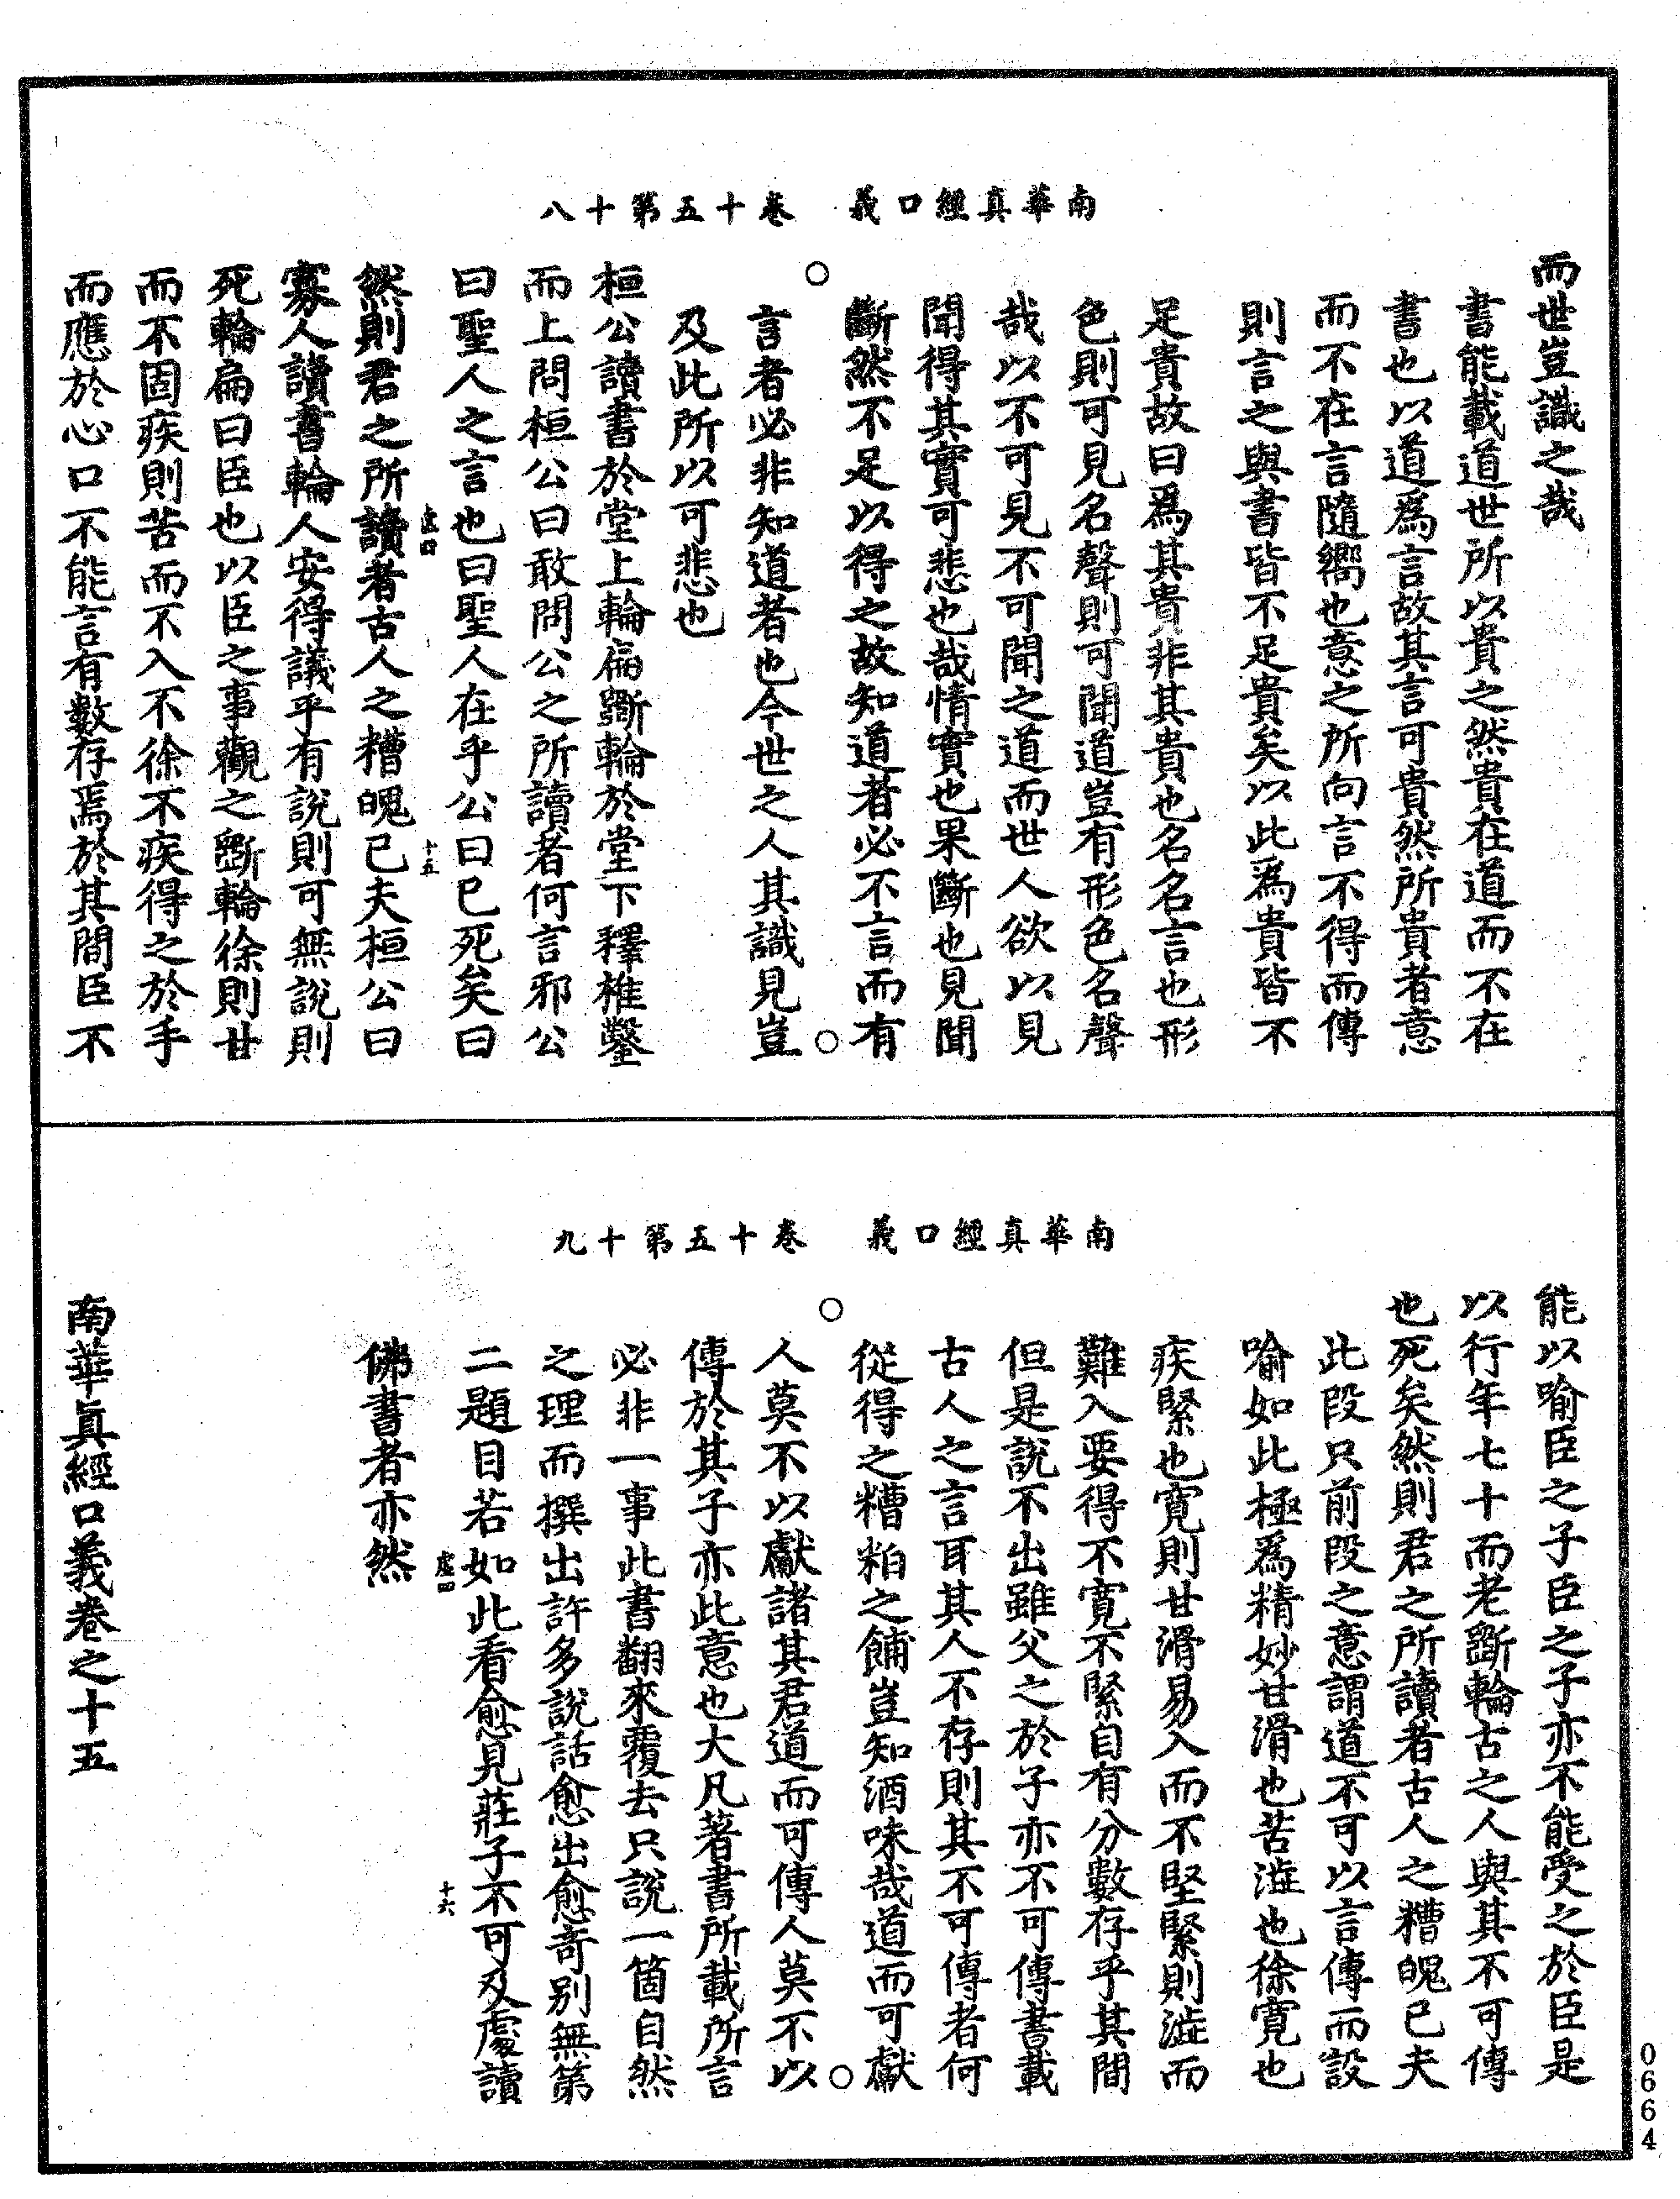 南華真經口義　卷十五第十八
而世豈識之哉
書能載道世所以貴之然貴在道而不在
書也以道爲言故其言可貴然所貴者意
而不在言隨嚮也意之所向言不得而傳
則言之與書皆不足貴矣以此爲貴皆不
足貴故曰爲其貴非其貴也名名言也形
色則可見名聲則可聞道豈有形色名聲
哉以不可見不可聞之道而世人欲以見
聞得其實可悲也哉情實也果斷也見聞
斷然不足以得之故知道者必不言而有
言者必非知道者也今世之人其識見豈
及此所以可悲也
桓公讀書於堂上輪扁斲輪於堂下釋椎鑿
而上問桓公曰敢問公之所讀者何言邪公
曰聖人之言也曰聖人在乎公曰已死矣曰
虛四　十五
然則君之所讀者古人之糟魄已夫桓公曰
寡人讀書輪人安得議乎有說則可無說則
死輪扁曰臣也以臣之事觀之斲輪徐則甘
而不固疾則苦而不入不徐不疾得之於手
而應於心口不能言有數存焉於其間臣不
南華真經口義　卷十五第十九
能以喻臣之子臣之子亦不能受之於臣是
以行年七十而老斲輪古之人與其不可傳
也死矣然則君之所讀者古人之糟魄已夫
此段只前段之意謂道不可以言傳而設
喻如此極爲精妙甘滑也苦澁也徐寬也
疾緊也寬則甘滑易入而不堅緊則澁而
難入要得不寬不緊自有分數存乎其間
但是說不出雖父之於子亦不可傳書載
古人之言耳其人不存則其不可傳者何
從得之糟粕之餔豈知酒味哉道而可獻
人莫不以獻諸其君道而可傳人莫不以
傳於其子亦此意也大凡著書所載所言
必非一事此書翻來覆去只說一箇自然
之理而撰出許多說話愈出愈奇别無第
二題目若如此看愈見莊子不可及處讀
虛四　十六
佛書者亦然
南華眞經口義卷之十五
0664